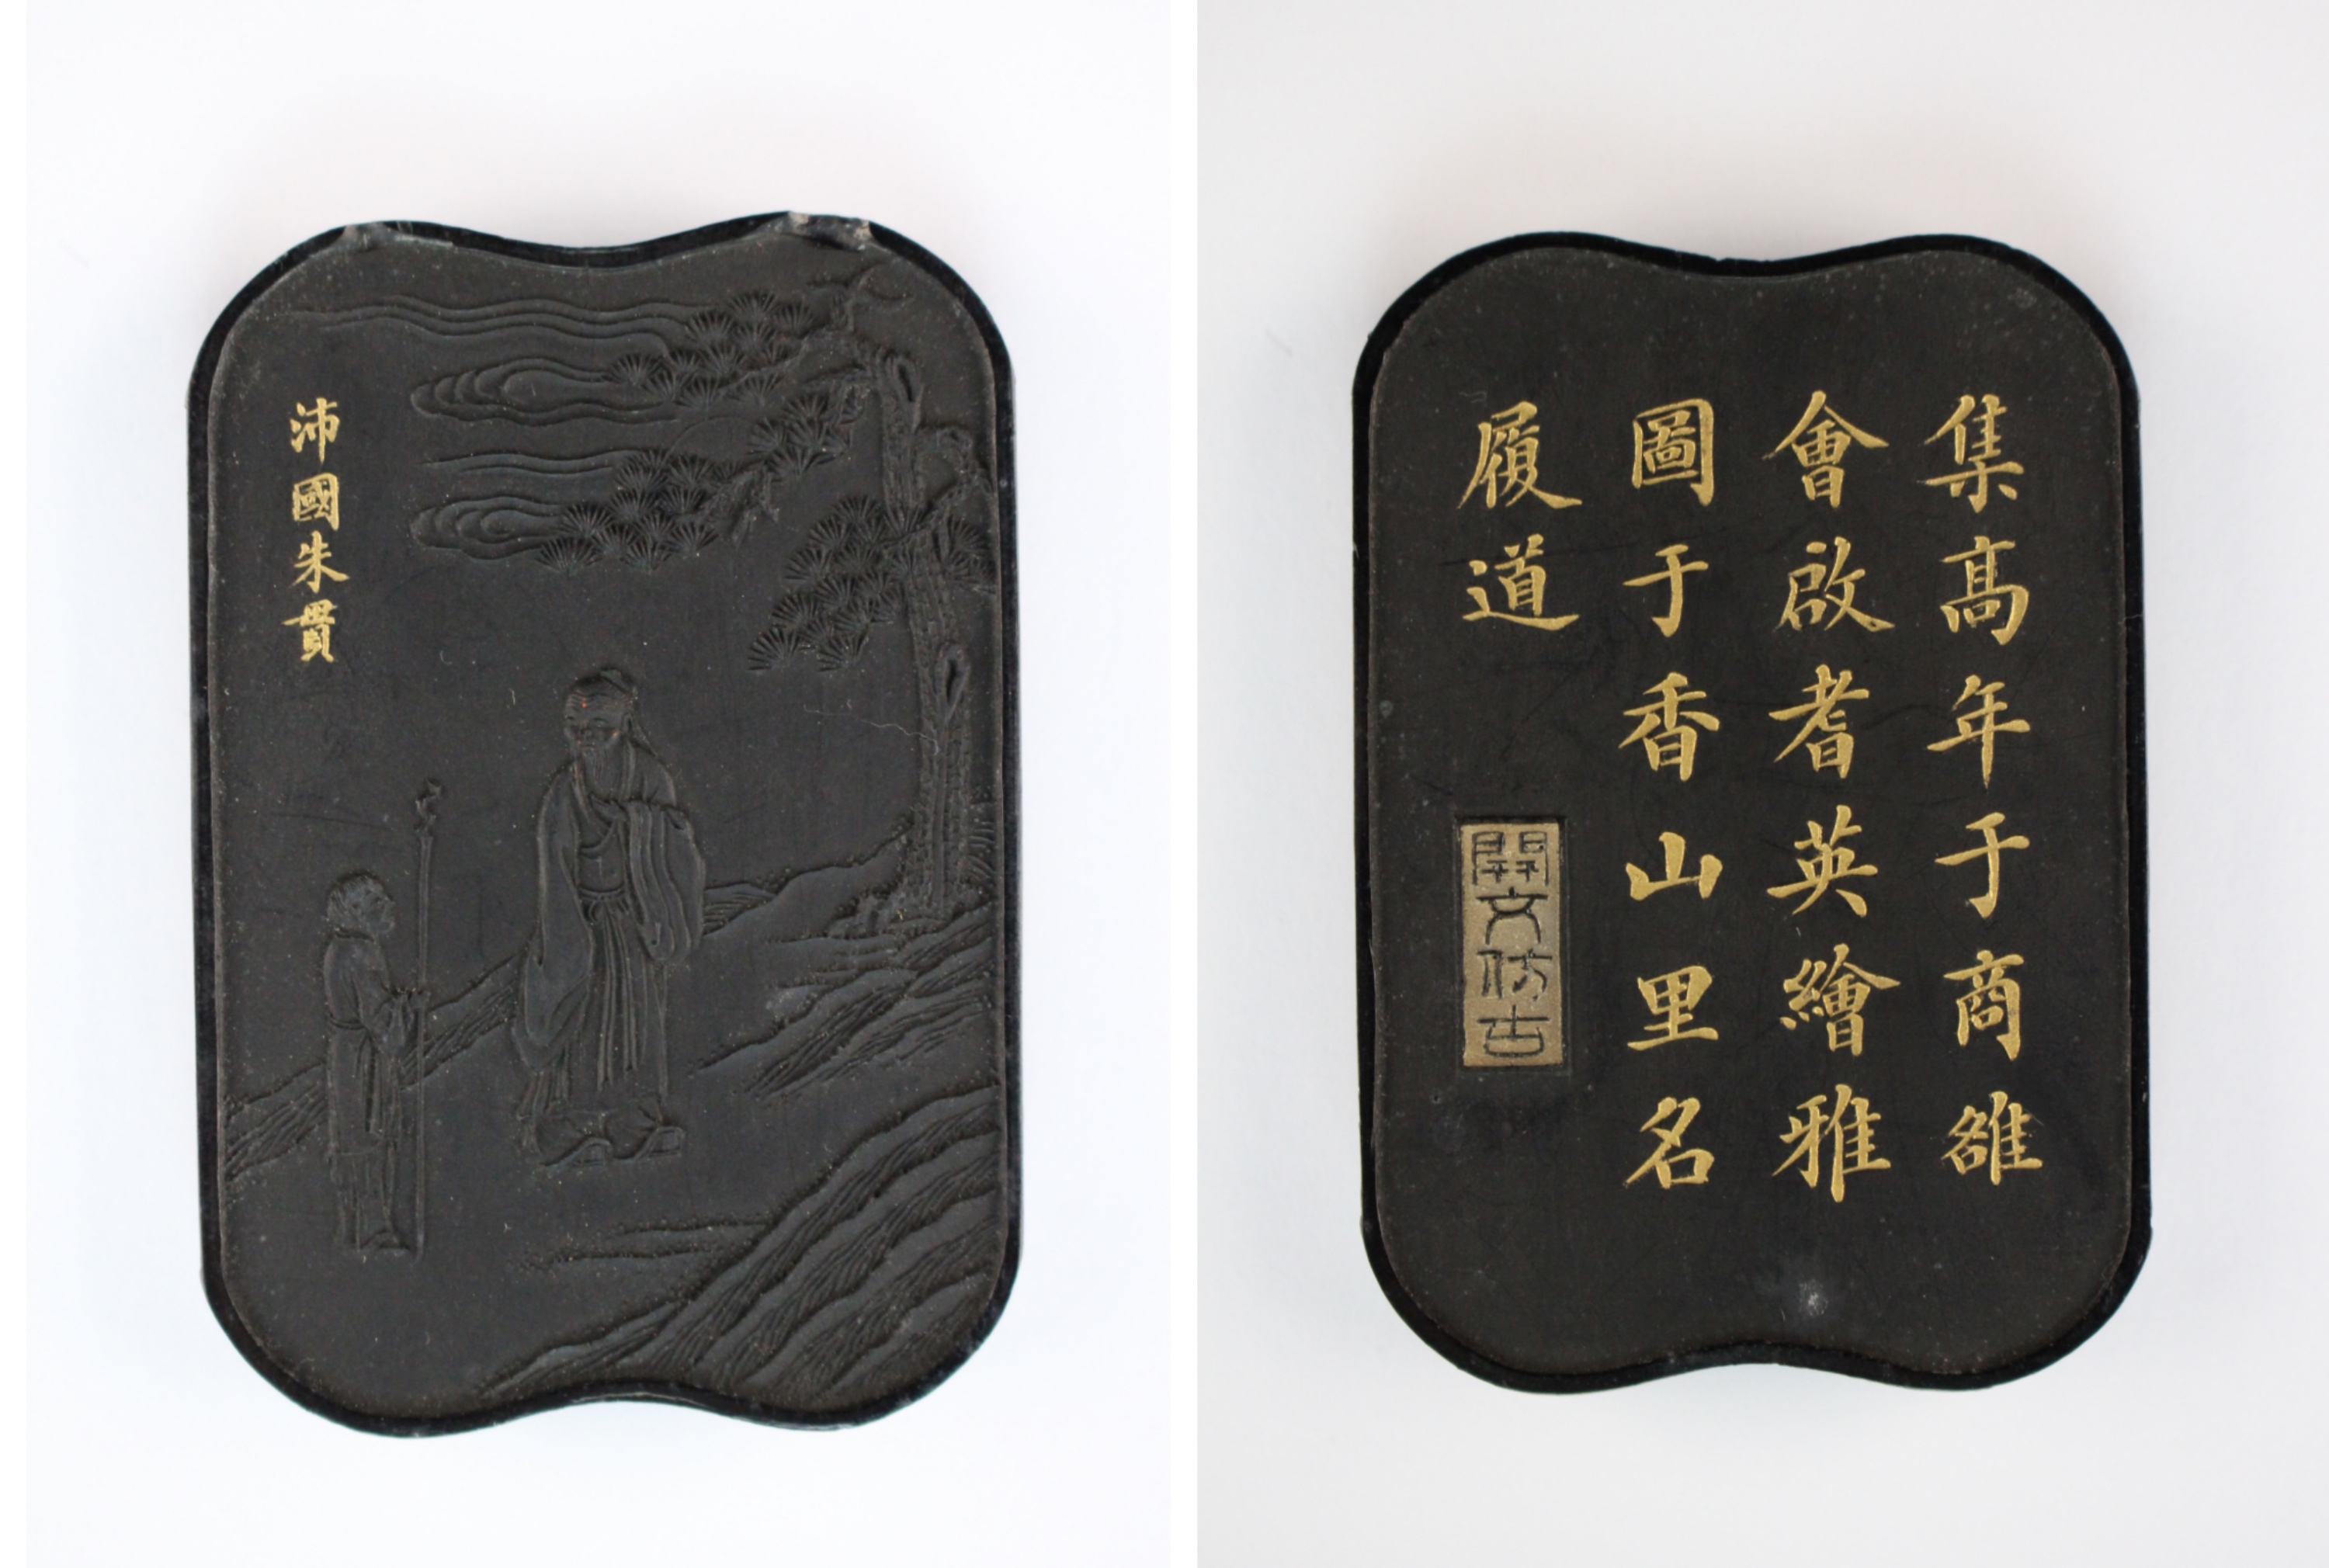 沛國朱貫
集高年于商雒
會啟耆英繪雅
圖于香山里名
履道
開文仿古